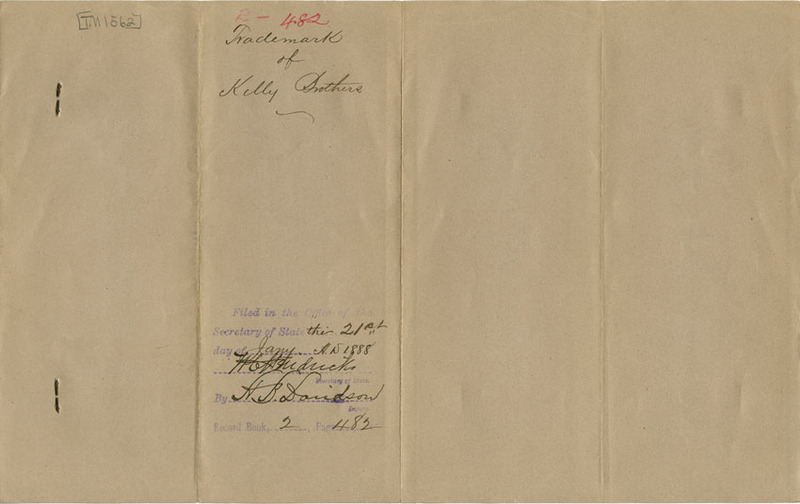 TM1562
R - 482
Trademark
of
Kelly Brothers
Filed in the Office of the
Secretary of State this 21st
day of Jany. A.D 1888
W C Hendricks
Secretary of State.
By H. B. Davidson
Deputy
Record Book, 2, Page 482